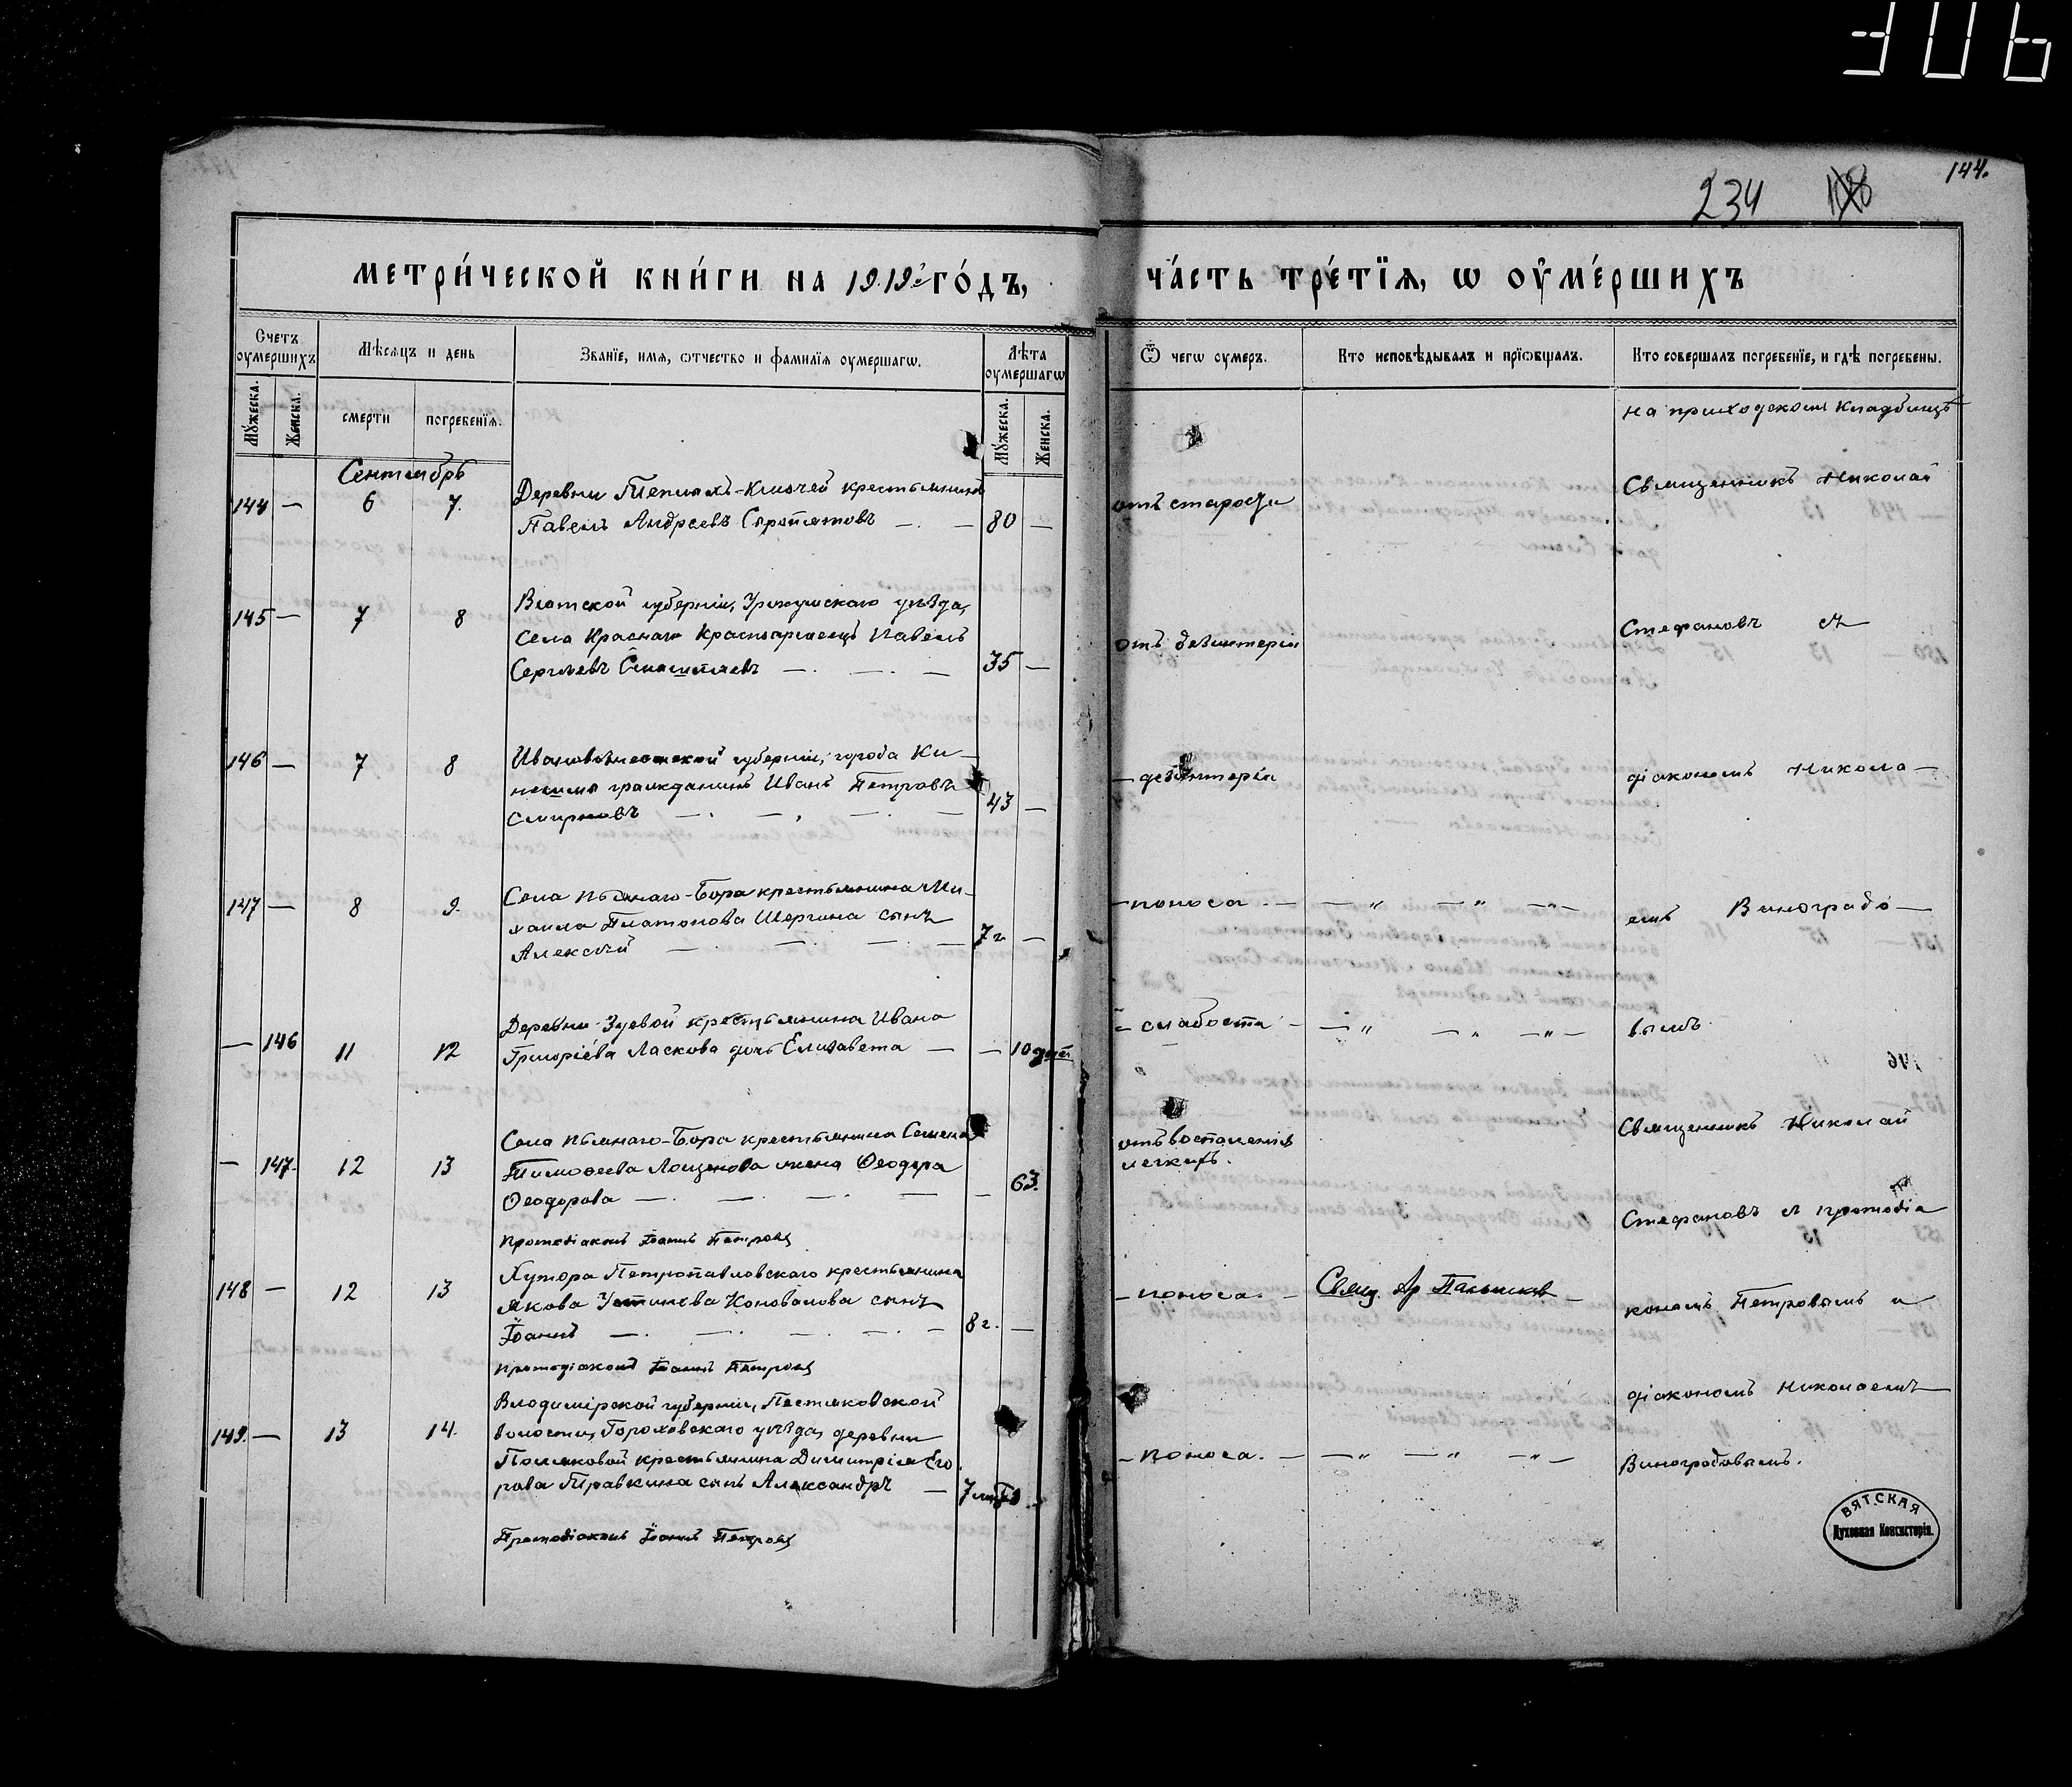 306
144.
234 108
метри́ческой кни́ги на 1919 г го́дъ,
ча́сть тре́тїѧ, ѡ оу҆ме́ршихъ
Счетъ оумершихъ
Мѣсѧцъ и день
Званїе, имѧ, ѿчество и фамилїѧ оумершагѡ.
Лѣта оумершагѡ
Ѿ чегѡ оумеръ.
Кто исповѣдывалъ и прїѡбщалъ.
Кто совершалъ погребенїе, и гдѣ погребены.
Мꙋжеска.
Женска.
смерти
погребенїѧ.
Мꙋжеска.
Женска.
на приходскомъ кладбищѣ
Сентябрь
144 — 6 7. Деревни Теплыхъ-Ключей крестьянинъ
Павелъ Андреевъ — . — 80 —
отъ старости
Священникъ Николай
145 — 7 8 Вятской губерніи, Уржумскаго уѣзда,
села Краснаго Красноармеецъ Павелъ
Сергѣевъ — . — . — 35 —
отъ дезинтеріи
Стефановъ съ
146 — 7 8 Ивановознесенской губерніи, города Ки-
нешма гражданинъ Иванъ Петровъ
Смирновъ — . — . — . — 43 —
— дезинтеріи
діакономъ Никола —
147 — 8 9. Села Пьянаго-Бора крестьянина Ми-
хаила Платонова Шергина сынъ
Алексѣй — . — . — . — 7 г. —
— поноса . — — „ — „ — „ —
емъ Виноградо —
— 146 11 12 Деревни Зуевой крестьянина Ивана
Григоріева Ласкова дочь Елизавета — — 10 дней
— слабости — — „ — „ — „ —
вымъ.
— 147. 12 13 Села Пьянаго-Бора крестьянина Семена
Тимоѳеева Лощенова жена Ѳеодора
Ѳеодорова — . — . — . — — 63.
отъ воспаленія
легкихъ.
Священникъ Николай
Стефановъ съ протодіа
Протодіаконъ Іоаннъ Петровъ
148 — 12 13 Хутора Петропавловскаго крестьянина
Якова Устинова Коновалова сынъ
Іоаннъ — . — . — . — . — 8 г. —
— поноса. — Свящ. —
кономъ Петровымъ и
Протодіаконъ Іоаннъ Петровъ
149. — 13 14. Владимірской губерніи, Пестяковской
волости, Гороховскаго уѣзда, деревни
Поляковой крестьянина Димитрія Его
рова Травкина сынъ Александръ — 7 лѣтъ
— поноса. — — „ — „ — „ —
діакономъ Николаемъ —
Виноградовымъ.
Протодіаконъ Іоаннъ Петровъ
ВЯТСКАЯ
Духовная Консисторія.